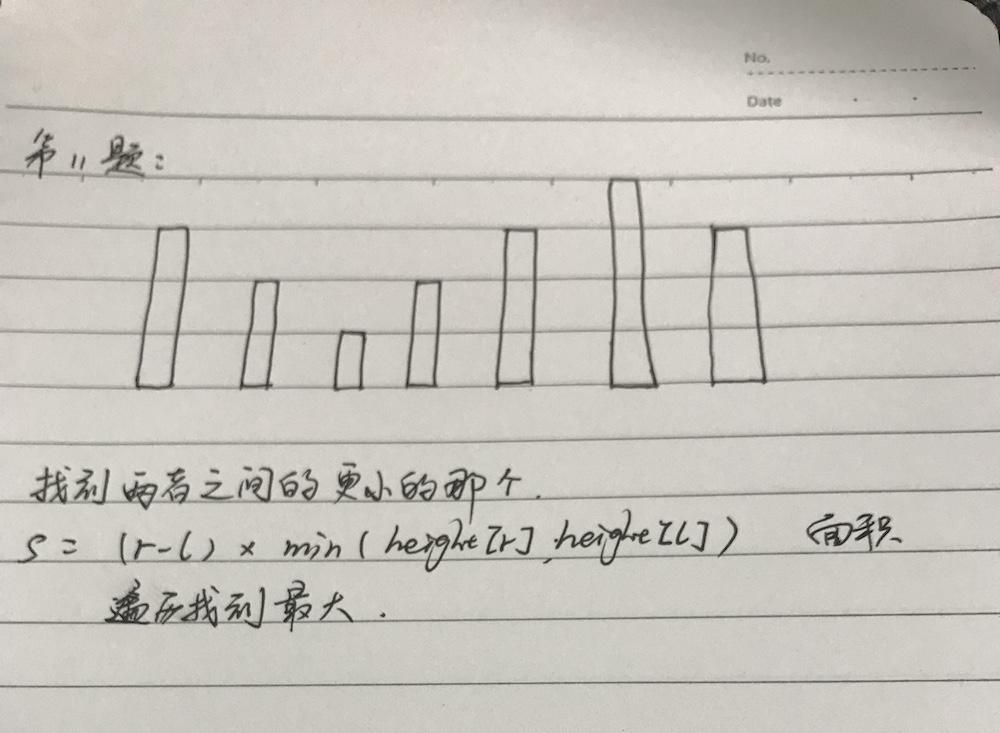 No.
Date
第11题：
找到两者之间的更小的那个.
S = (r-l) × min(height[r], height[l]) 面积
遍历找到最大.